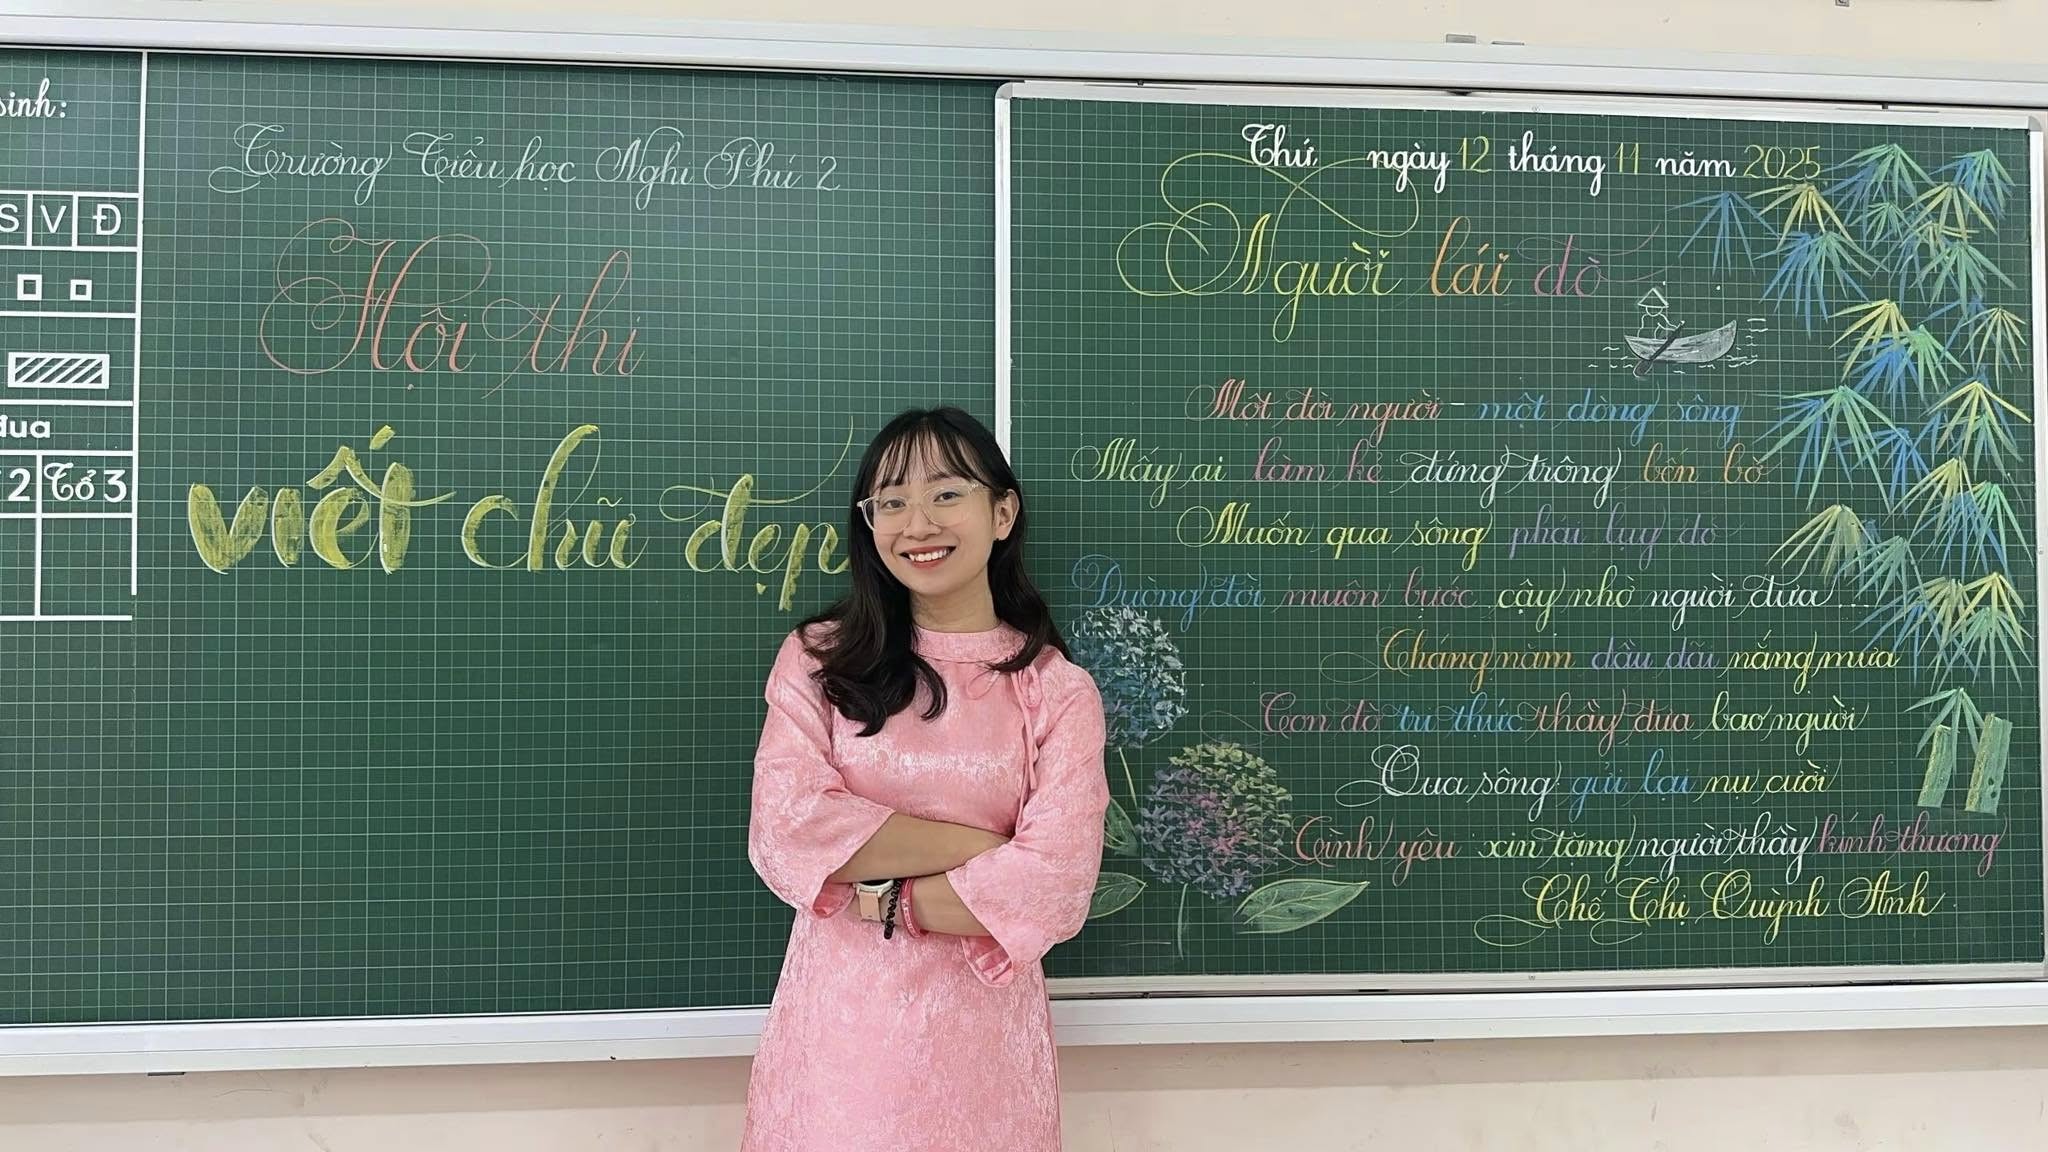 sinh:
S V Đ
đua
2 Tổ 3
Trường Tiểu học Nghi Phú 2
Hội thi
viết chữ đẹp
Thứ ngày 12 tháng 11 năm 2025
Người lái đò
Một đời người - một dòng sông
Mấy ai làm kẻ đứng trông bến bờ
Muốn qua sông phải lụy đò
Đường đời muôn bước cậy nhờ người đưa...
Tháng năm dầu dãi nắng mưa
Con đò tri thức thầy đưa bao người
Qua sông gửi lại nụ cười
Tình yêu xin tặng người thầy kính thương
Chế Thị Quỳnh Anh